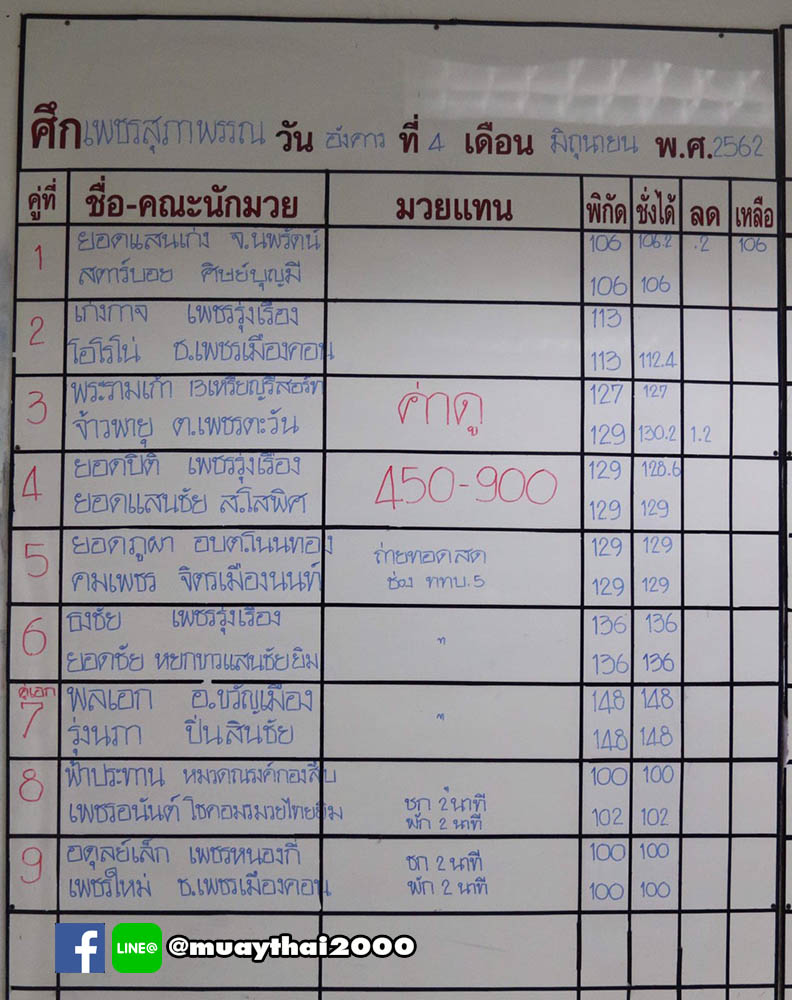 ศึกเพชรสุภาพรรณ วัน อังคาร ที่ 4 เดือน มิถุนายน พ.ศ.2562
คู่ที่ ชื่อ-คณะนักมวย มวยแทน พิกัด ชั่งได้ ลด เหลือ
1 ยอดแสนเก่ง จ.นพรัตน์ 106 106.2 .2 106
สตาร์บอย ศิษย์บุญมี 106 106
2 เก่งกาจ เพชรรุ่งเรือง 113
โอโรโน่ ช.เพชรเมืองคอน 113 112.4
3 พระรามเก้า 13เหรียญรีสอร์ท 127 127
ค่าดู
จ้าวพายุ ต.เพชรตะวัน 129 130.2 1.2
4 ยอดปิติ เพชรรุ่งเรือง 450-900 129 128.6
ยอดแสนชัย ส.โสพิศ 129 129
5 ยอดภูผา อบต.โนนทอง ถ่ายทอดสด 129 129
คมเพชร จิตรเมืองนนท์ ช่อง ททบ.5 129 129
6 ธงชัย เพชรรุ่งเรือง " 136 136
ยอดชัย หยกขาวแสนชัยยิม 136 136
คู่เอก
7 พลเอก อ.ขวัญเมือง " 148 148
รุ่งนภา ปิ่นสินชัย 148 148
8 ฟ้าประทาน หมวดณรงค์กองสืบ 100 100
ชก 2 นาที
เพชรอนันต์ โชคอมรมวยไทยยิม พัก 2 นาที 102 102
9 อดุลย์เล็ก เพชรหนองกี่ ชก 2 นาที 100 100
เพชรใหม่ ช.เพชรเมืองคอน พัก 2 นาที 100 100
f LINE@ @muaythai2000